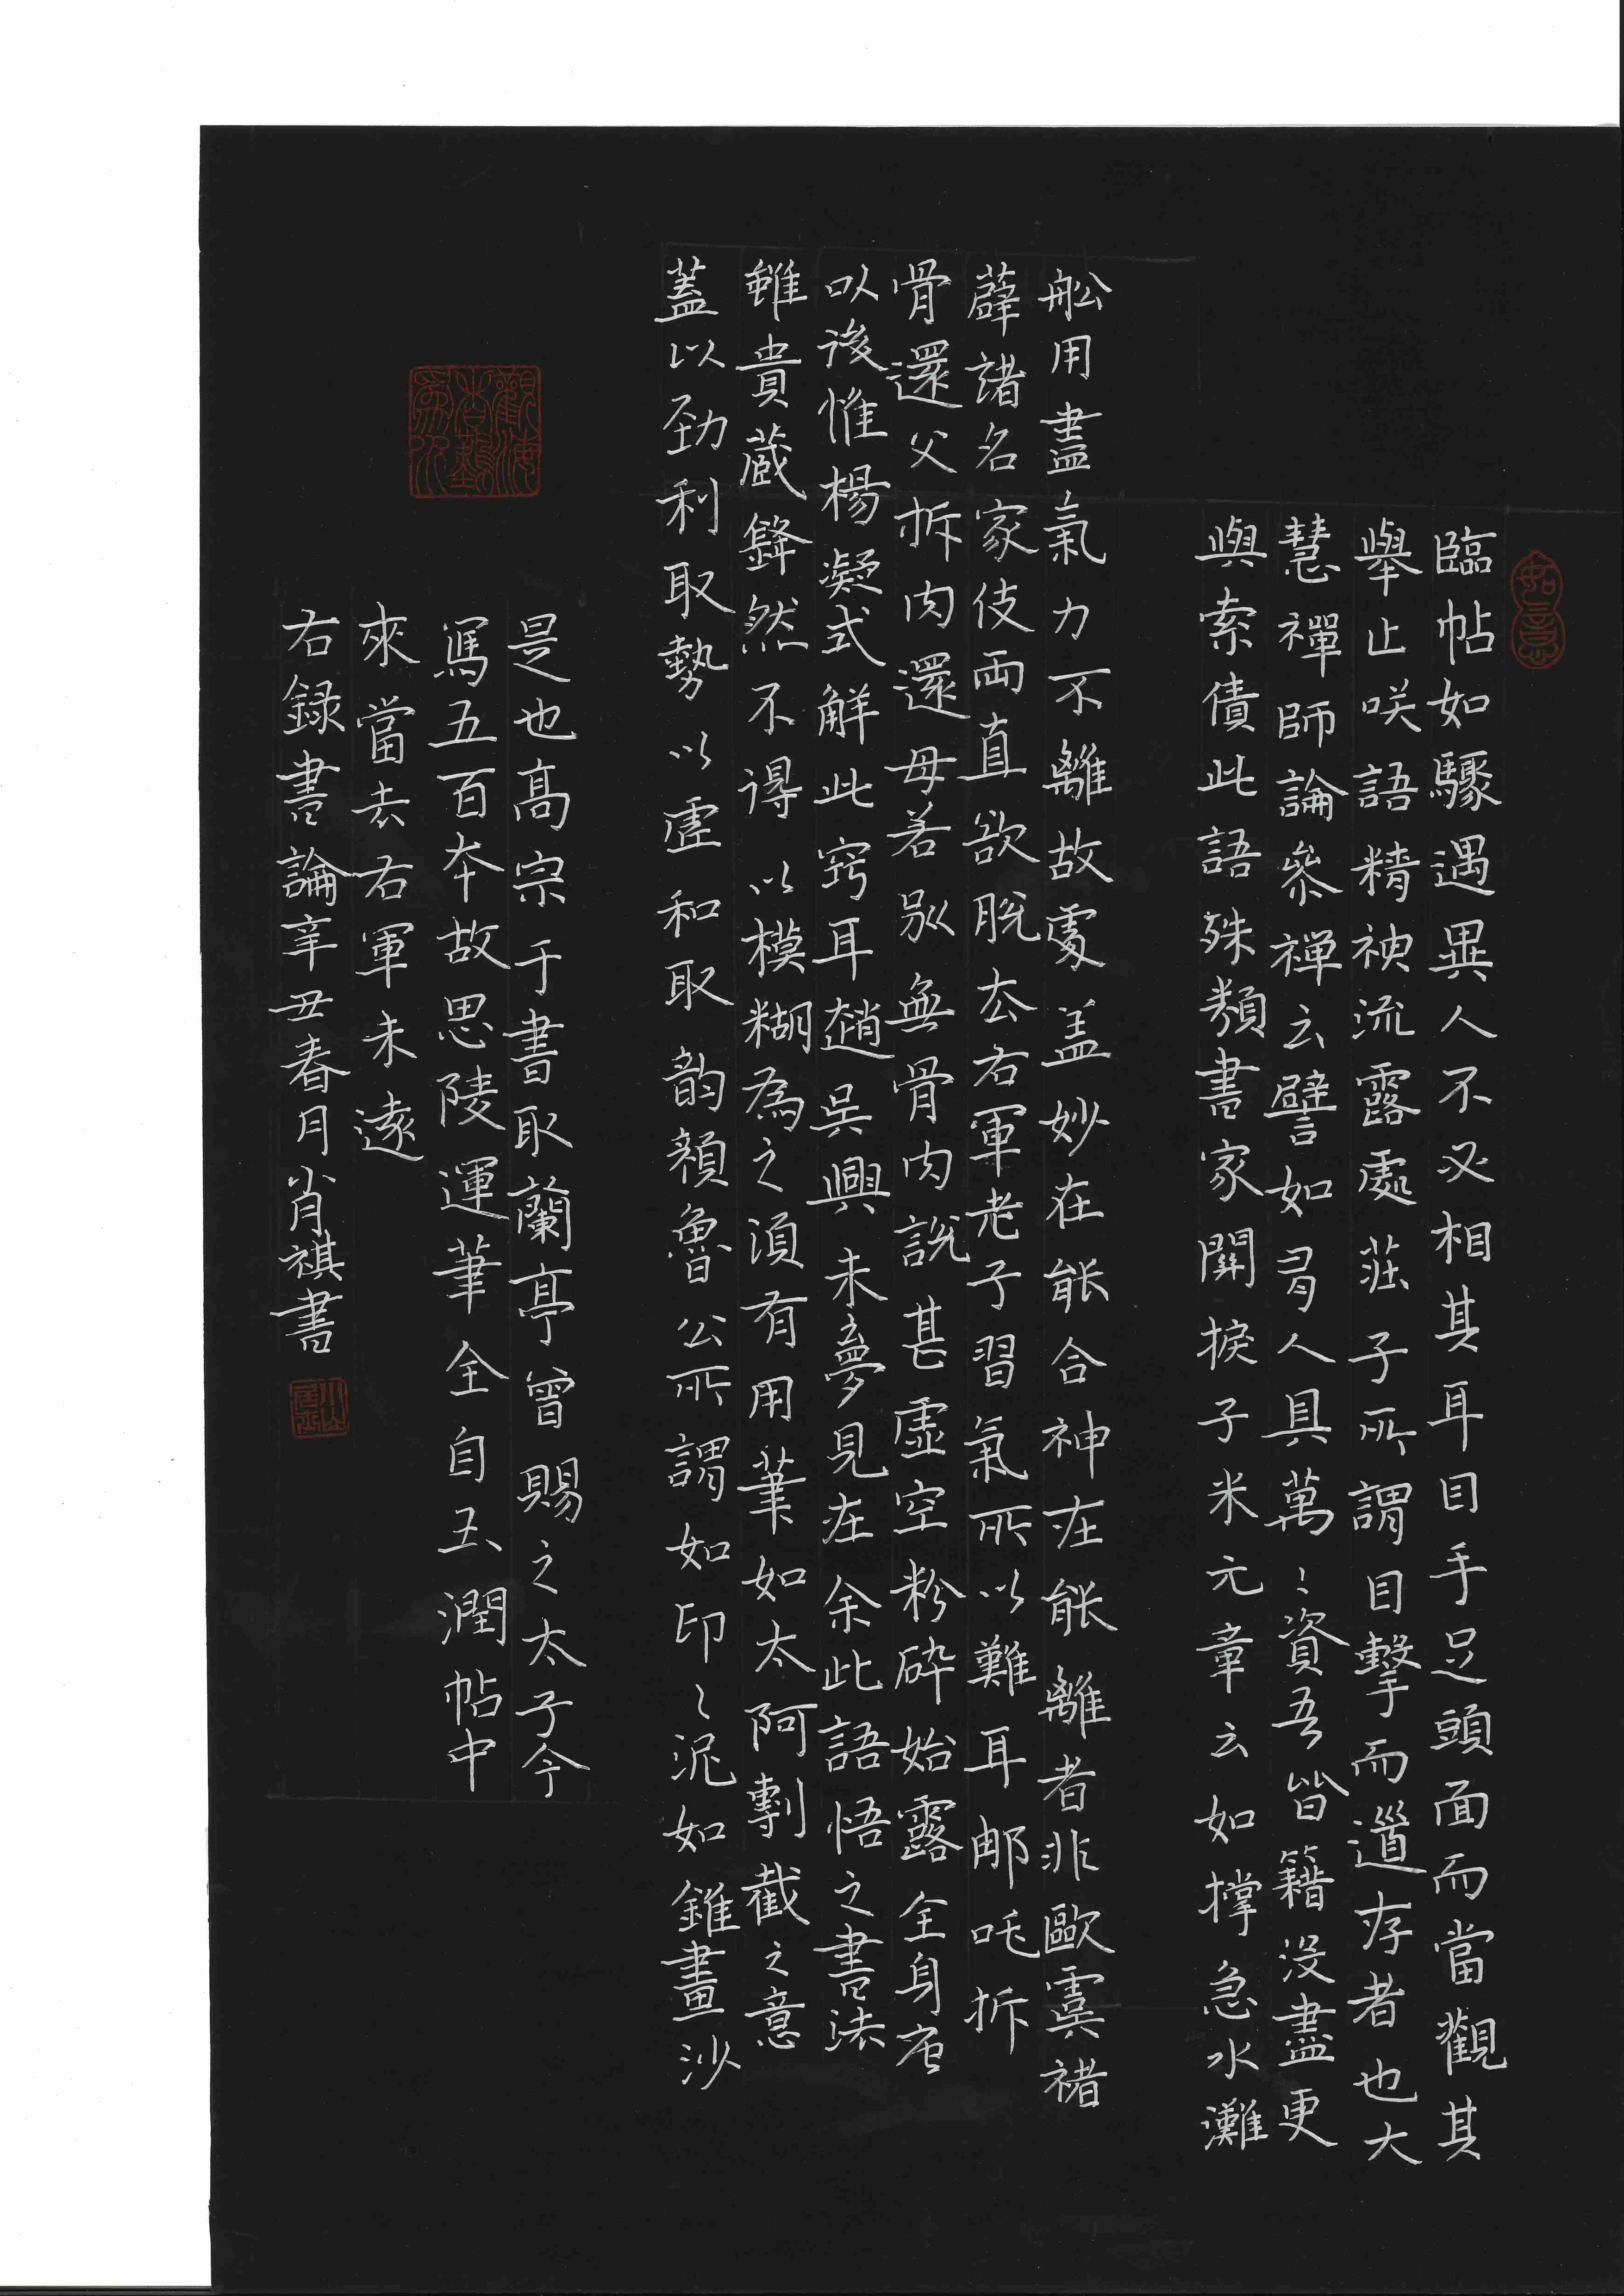 如意
臨帖如驟遇異人不必相其耳目手足頭面而當觀其
舉止咲語精神流露處莊子所謂目擊而道存者也大
慧禪師論參禪云譬如有人具萬〻資吾皆籍沒盡更
與索債此語殊類書家關捩子米元章云如撐急水灘
舩用盡氣力不離故處盖妙在能合神在能離者非歐虞褚
薛諸名家伎兩直欲脫去右軍老子習氣所以難耳那吒拆
骨還父拆肉還母若別無骨肉說甚虛空粉碎始露全身宕
以後惟楊凝式解此竅耳趙吳興未夢見在余此語悟之書法
雖貴藏鋒然不得以模糊為之須有用筆如太阿剸截之意
蓋以勁利取勢以虛和取韵顏魯公所謂如印〻泥如錐畫沙
是也高宗于書取蘭亭曾賜之太子令
寫五百本故思陵運筆全自玉潤帖中
來當去右軍未遠
右録書論辛丑春月肖祺書